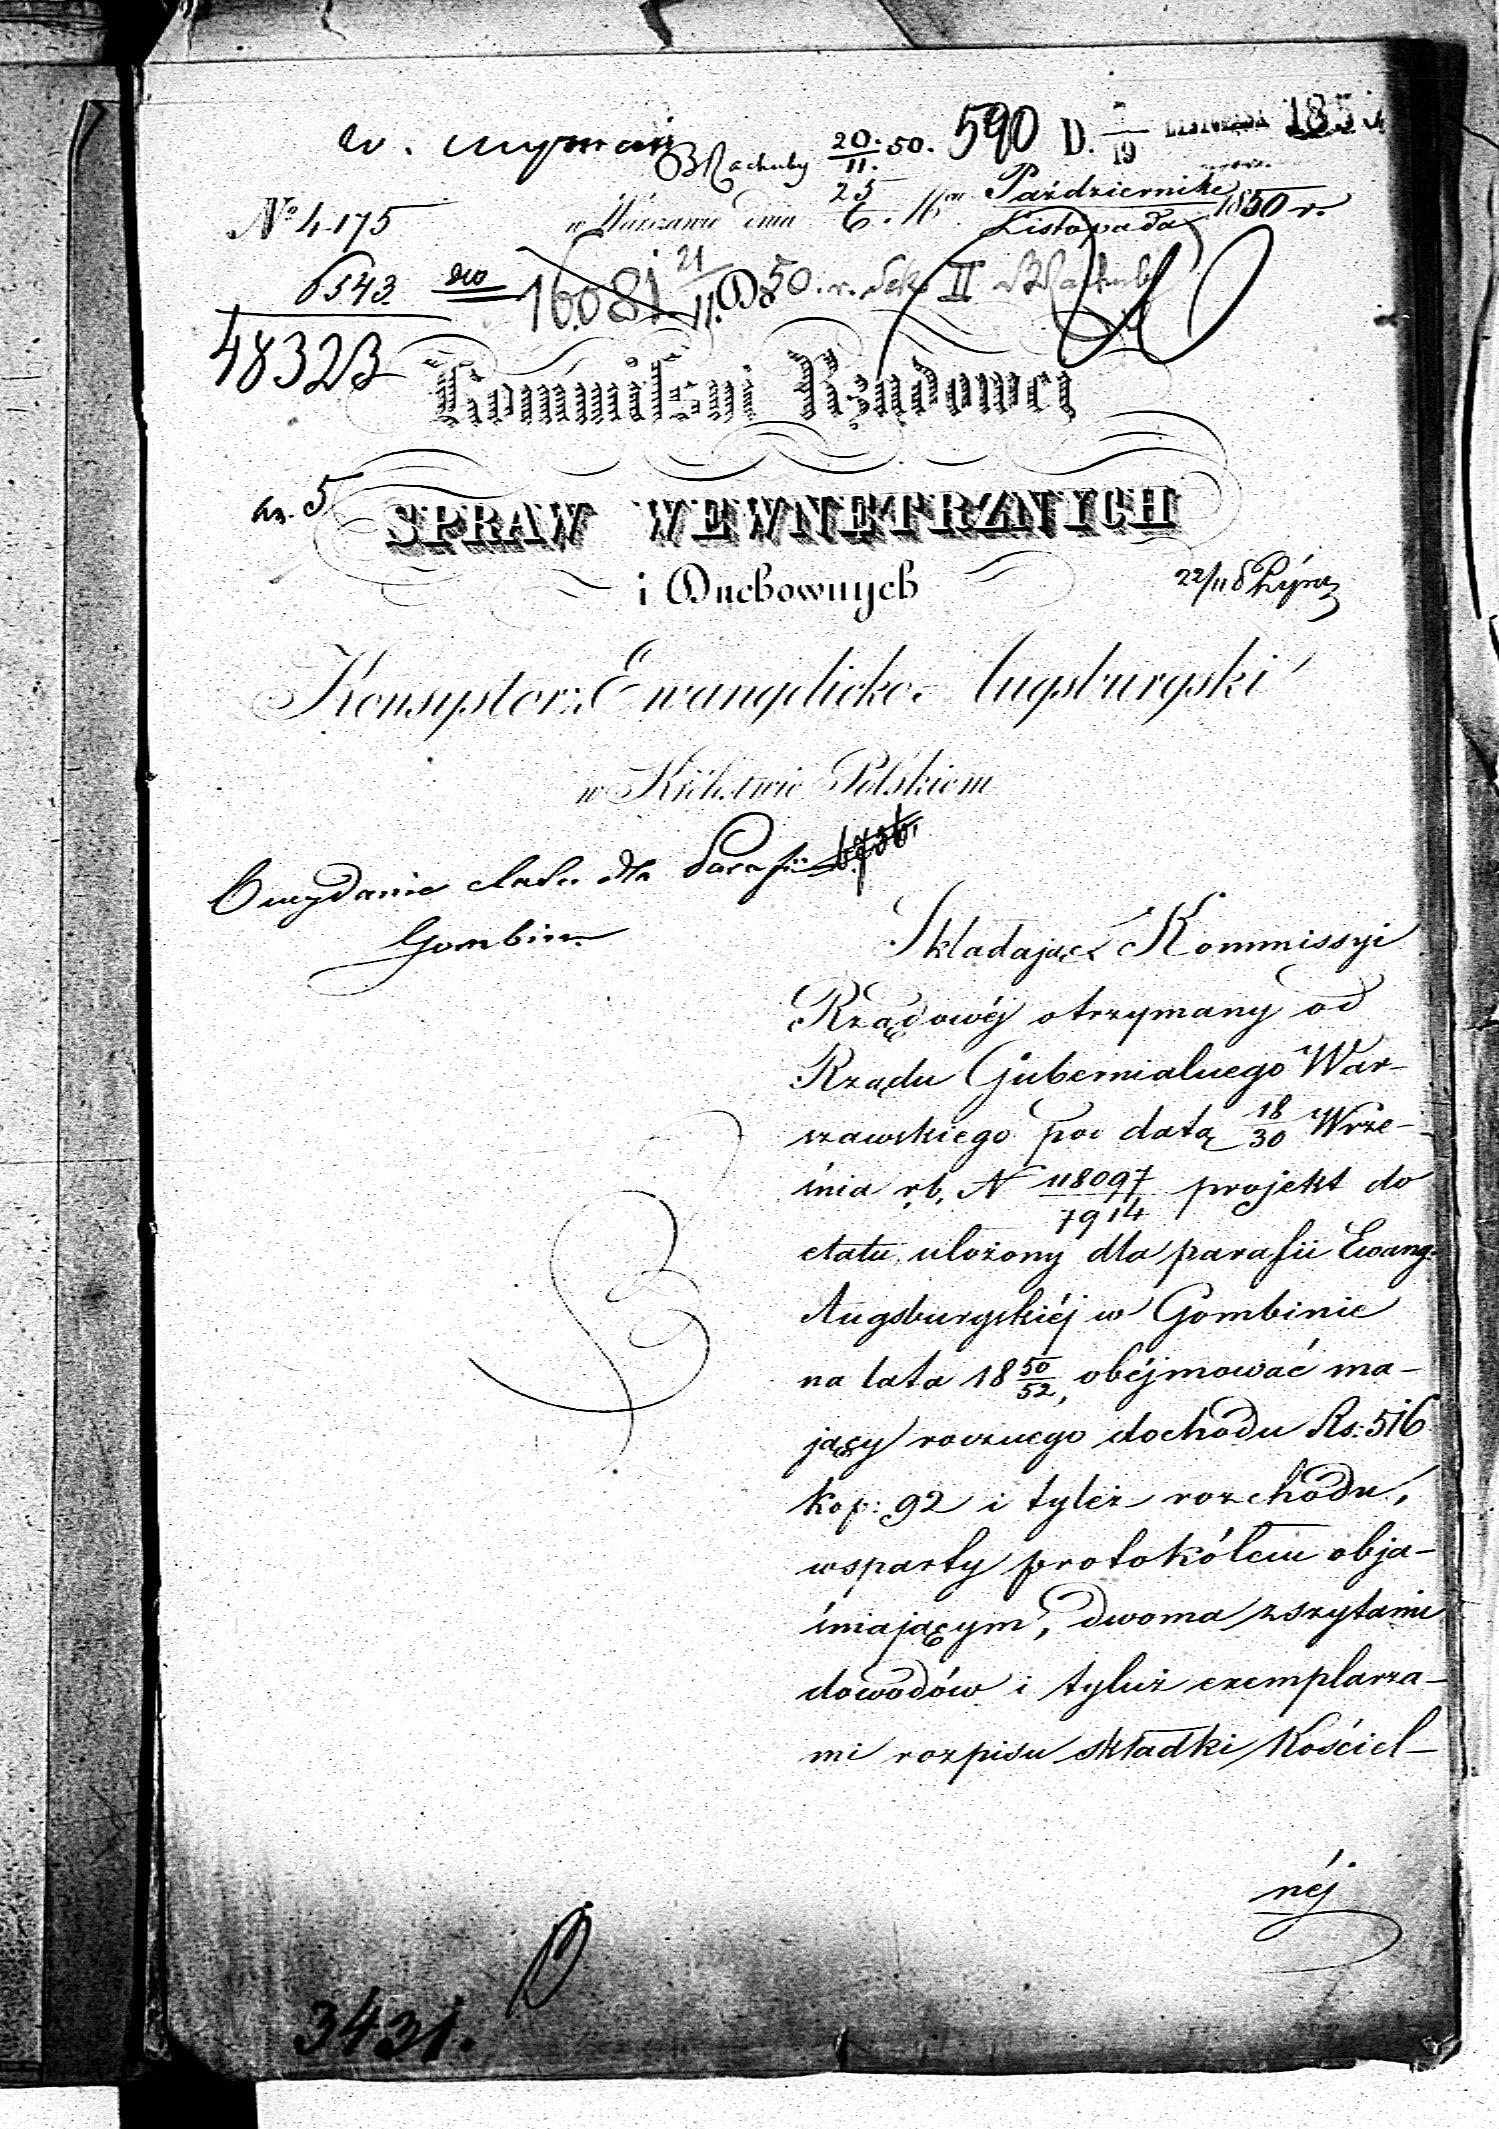 590 D. 7/19 LISTOPADA 1850
B Rachuby 20/11. 50.
No 4175
w Warszawie dnia 25/6. Października/Listopada 1850 r.
6543
16081 21/11. 50. r. Sek. II B Rachuby
Do
48323
Kommissyi Rządowej
SPRAW WEWNĘTRZNYCH
i Duchownych
22/11
Konsystorz Ewangelicko-Augsburgski
w Królestwie Polskiem
O wydanie etatu dla Parafii
Gombin
Składając Kommissyi
Rządowéj otrzymany od
Rządu Gubernialnego War-
szawskiego pod datą 18/30 Wrze-
śnia r.b. N 118097/7914 projekt do
etatu ułożony dla parafii Ewang.
Augsburgskiéj w Gombinie
na lata 18 50/52, obéjmować ma-
jący rocznego dochodu Rs: 516
kop: 92 i tyleż rozchodu,
wsparty protokółem obja-
śniającym, dwoma zszytami
dowodów i tyluż exemplarza-
mi rozpisu składki Kościel-
néj
3431.